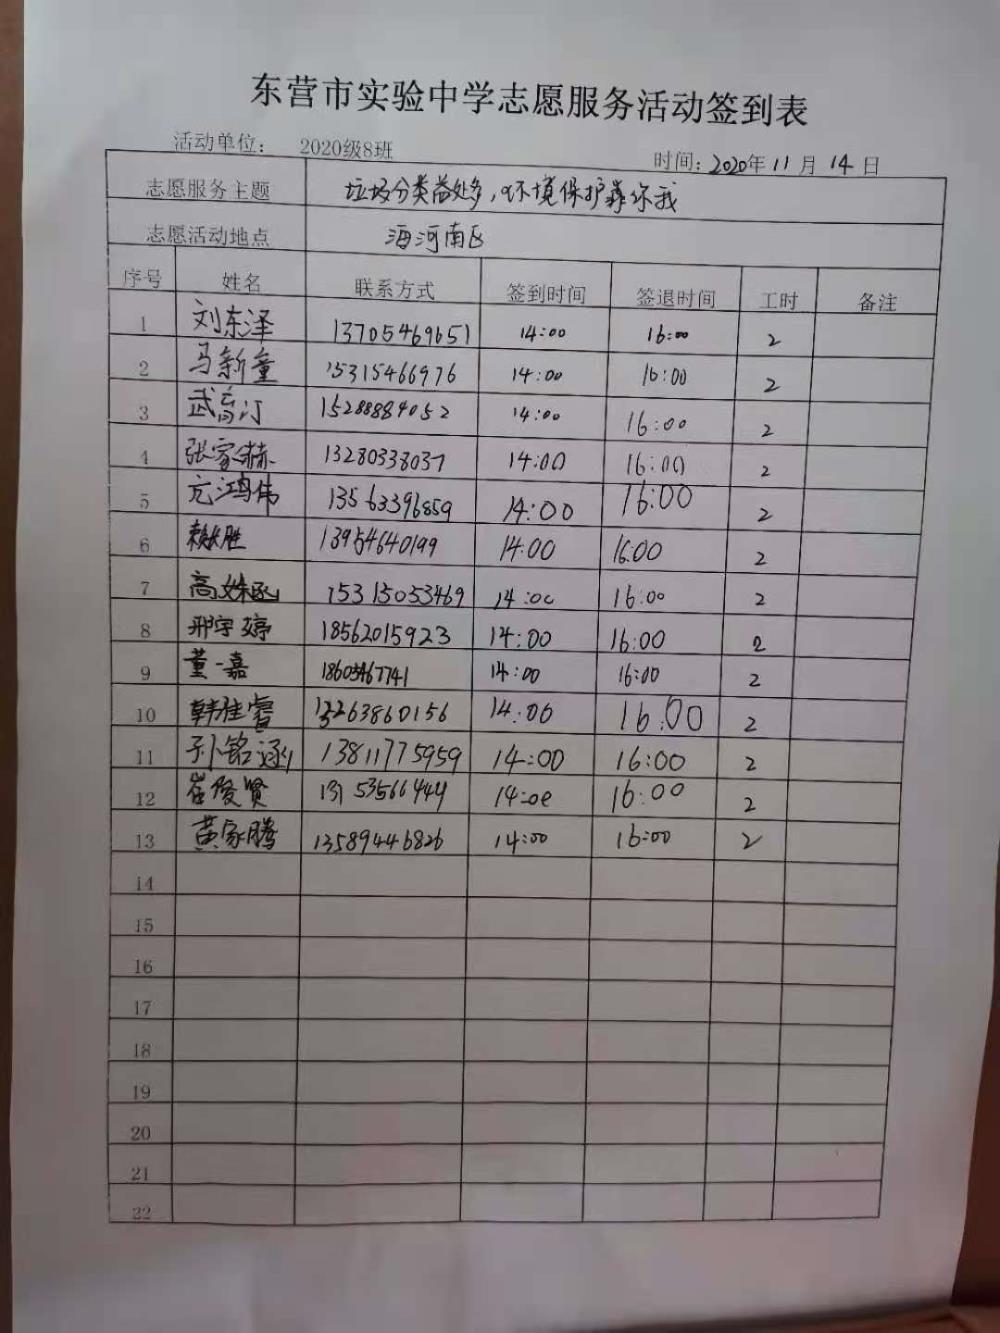 东营市实验中学志愿服务活动签到表
活动单位: 2020级8班 时间: 2020年11月14日
志愿服务主题 垃圾分类益处多,环境保护靠你我
志愿活动地点 海河南区
序号 姓名 联系方式 签到时间 签退时间 工时 备注
1 刘东泽 13705469651 14:00 16:00 2
2 马新童 15315466976 14:00 16:00 2
3 武汀 15288884052 14:00 16:00 2
4 张家赫 13280338037 14:00 16:00 2
5 亢鸿伟 13563396859 14:00 16:00 2
6 胜 13954640199 14:00 16:00 2
7 高姝 15315053469 14:00 16:00 2
8 邢宇婷 18562015923 14:00 16:00 2
9 董一嘉 18605467741 14:00 16:00 2
10 韩佳睿 13263860156 14:00 16:00 2
11 孙铭涵 13811775959 14:00 16:00 2
12 崔俊贤 14:00 16:00 2
13 黄家腾 13589446826 14:00 16:00 2
14
15
16
17
18
19
20
21
22